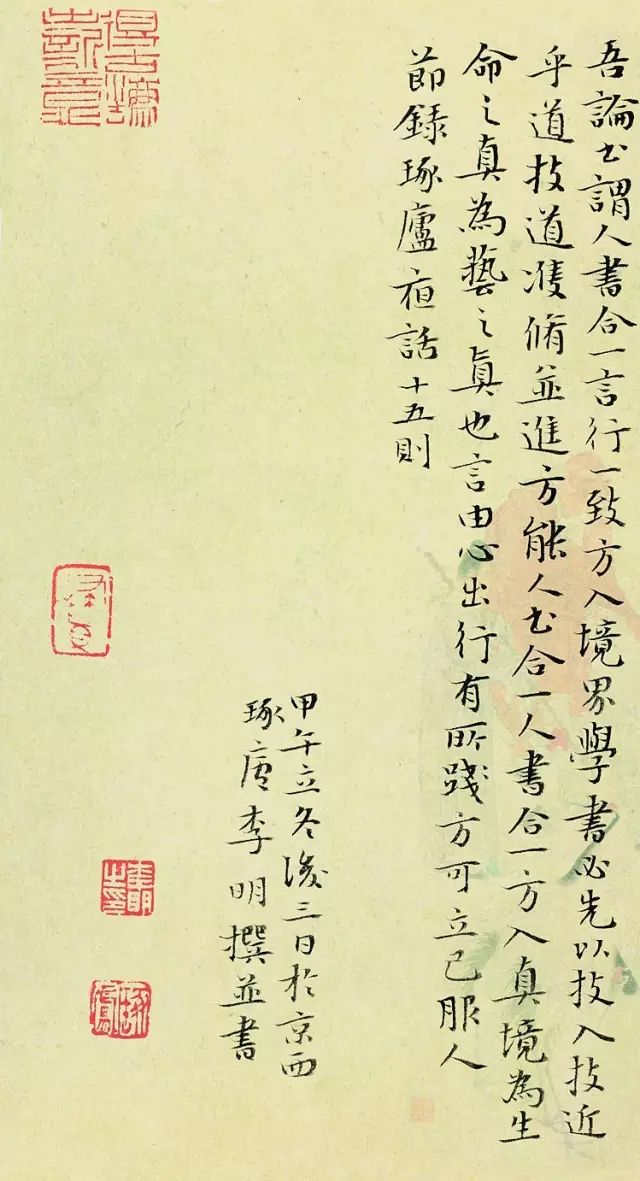 吾論书謂人書合一言行一致方入境界學書必先以技入技近
乎道技道雙脩並進方能人书合一人書合一方入真境為生
命之真為藝之真也言由心出行有所踐方可立己服人
節錄琢廬夜話十五則
甲午立冬後三日於京西
琢庐李明撰並書